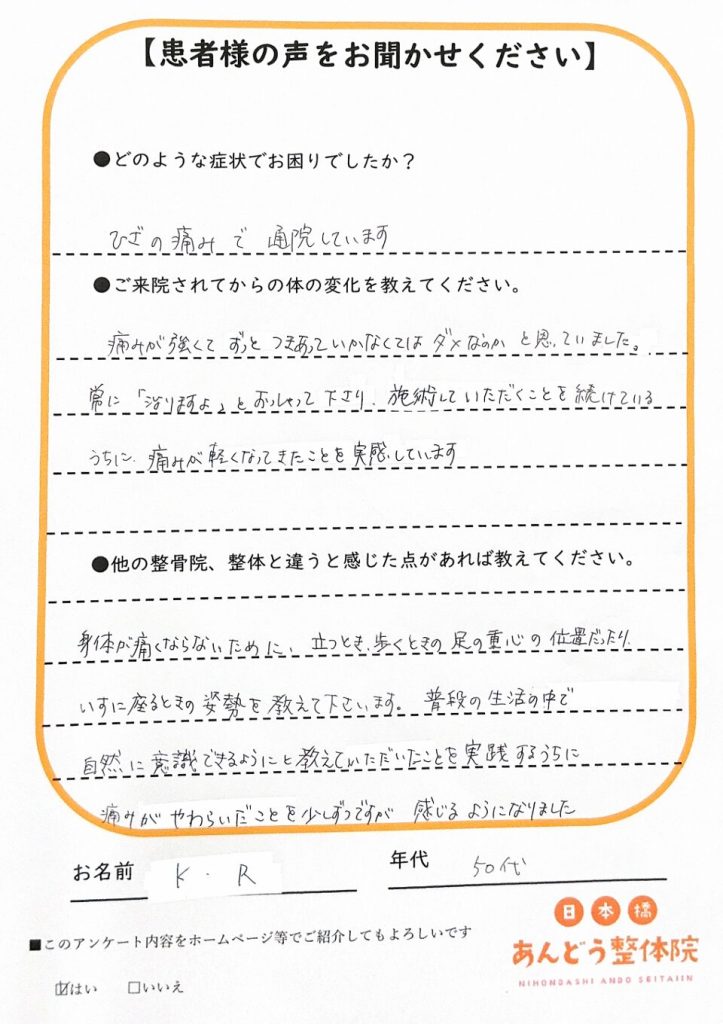 【患者様の声をお聞かせください】
●どのような症状でお困りでしたか？
ひざの痛みで 通院しています
●ご来院されてからの体の変化を教えてください。
痛みが強くて ずっと つきあっていかなくては ダメなのか と思っていました。
常に「治りますよ」とおっしゃって下さり、施術していただくことを続けている
うちに、痛みが軽くなってきたことを実感しています
●他の整骨院、整体と違うと感じた点があれば教えてください。
身体が痛くならないために、立つとき、歩くときの足の重心の位置だったり、
いすに座るときの姿勢を教えて下さいます。普段の生活の中で
自然に意識できるようにと教えていただいたことを実践するうちに
痛みがやわらいだことを少しずつですが 感じるようになりました
お名前 K・R 年代 50代
■このアンケート内容をホームページ等でご紹介してもよろしいです
☑はい □いいえ
日本橋
あんどう整体院
NIHONBASHI ANDO SEITAIIN